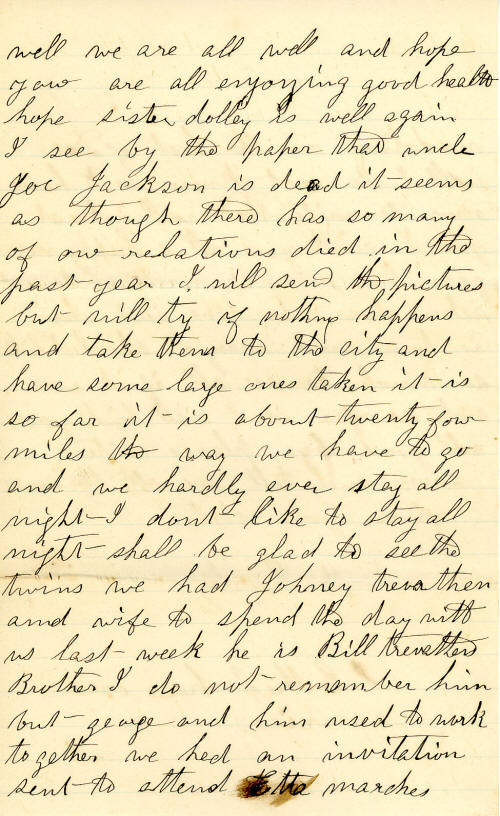 well we are all well and hope
yow are all enjoying good health
hope sister dolley is well again
I see by the paper that uncle
Joe Jackson is dead it seems
as though there has so many
of our relations died in the
past year I will send the pictures
but will try if nothing happens
and take them to the city and
have some large ones taken it is
so far it is about twenty four
miles the way we have to go
and we hardly ever stay all
night I dont like to stay all
night shall be glad to see the
twins we had Johney
and wife to spend the day with
us last week he is Bill
Brother I do not remember him
but george and him used to work
together we hed an invitation
sent to attend Etta marches